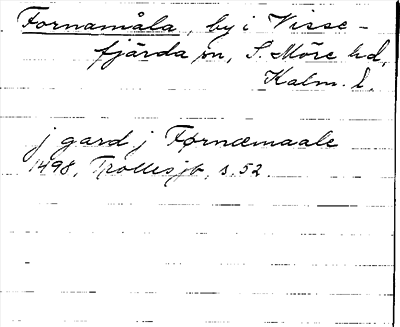 Fornamåla, by i Visse-
fjärda sn, S. Möre hd,
Kalm. l.
j gard j Førnæmaale
1498, Trollesjb, s. 52.